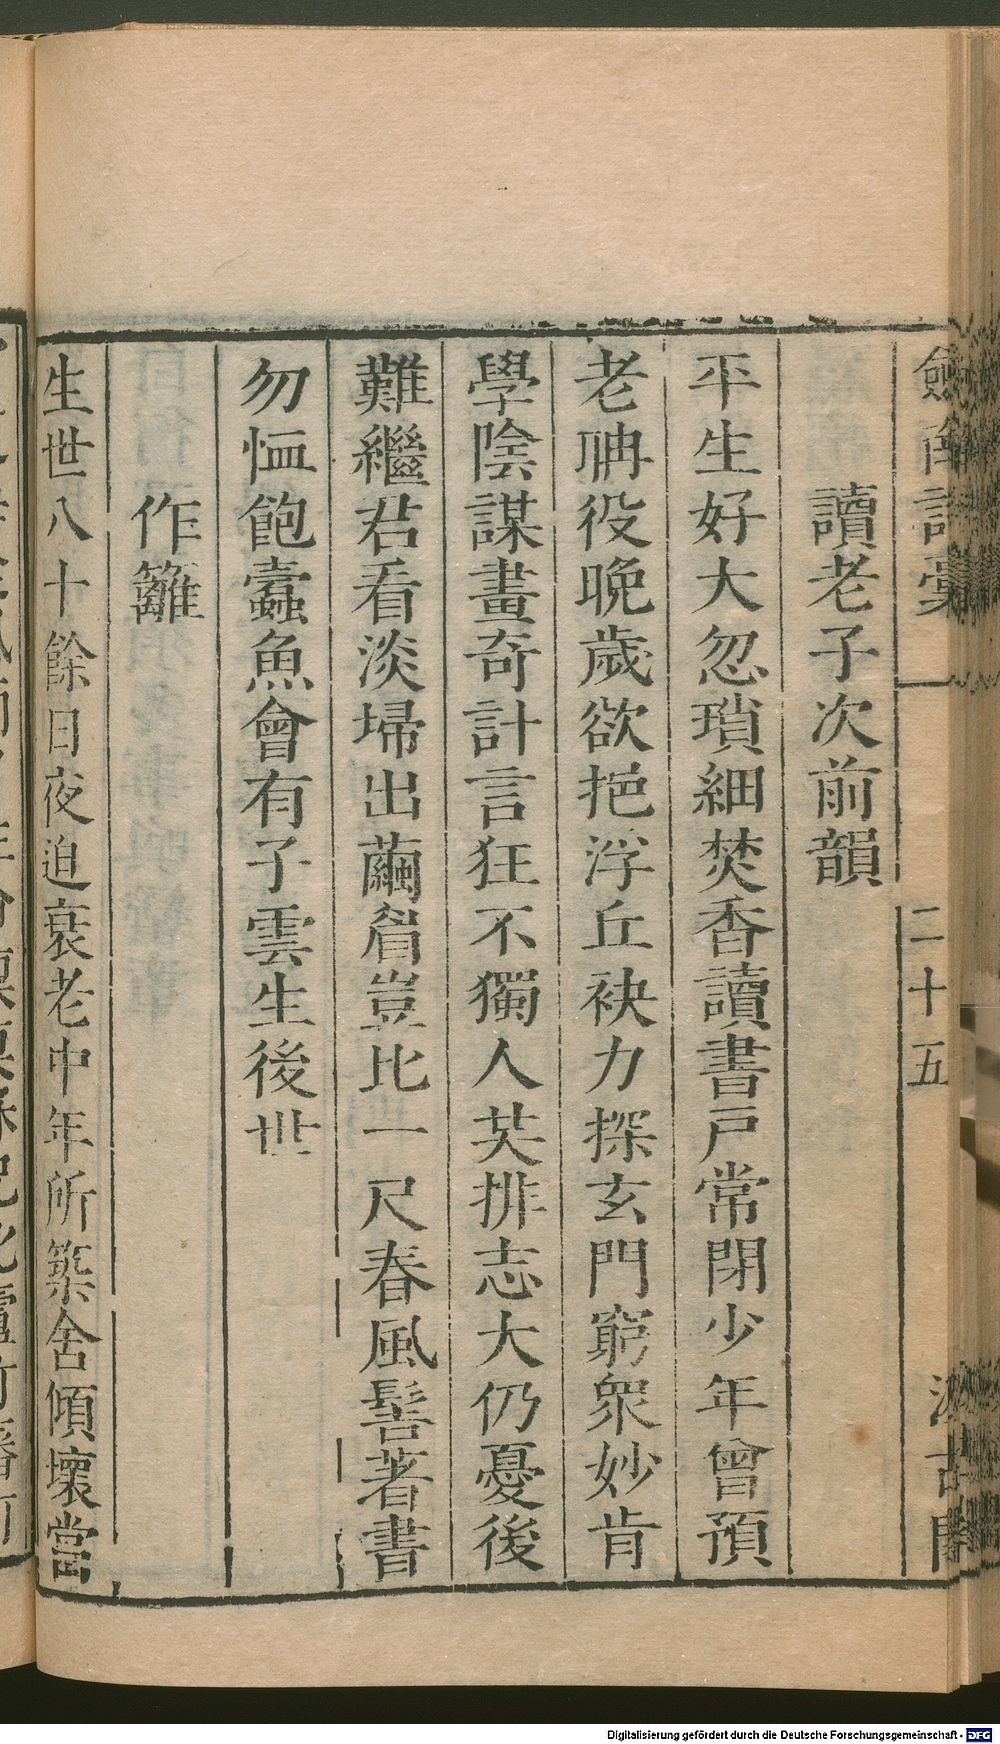 劍南詩稾 二十五 汲古閣
讀老子次前韻
平生好大忽瑣細焚香讀書戸常閉少年曾預
老聃役晚歲欲挹浮丘袂力探玄門窮衆妙肯
學陰謀畫奇計言狂不獨人共排志大仍憂後
難繼君看淡埽出繭眉豈比一尺春風髻著書
勿恤飽蠹魚會有子雲生後世
作籬
生世八十餘日夜迫衰老中年所築舍傾壞當
Digitalisierung gefördert durch die Deutsche Forschungsgemeinschaft - DFG